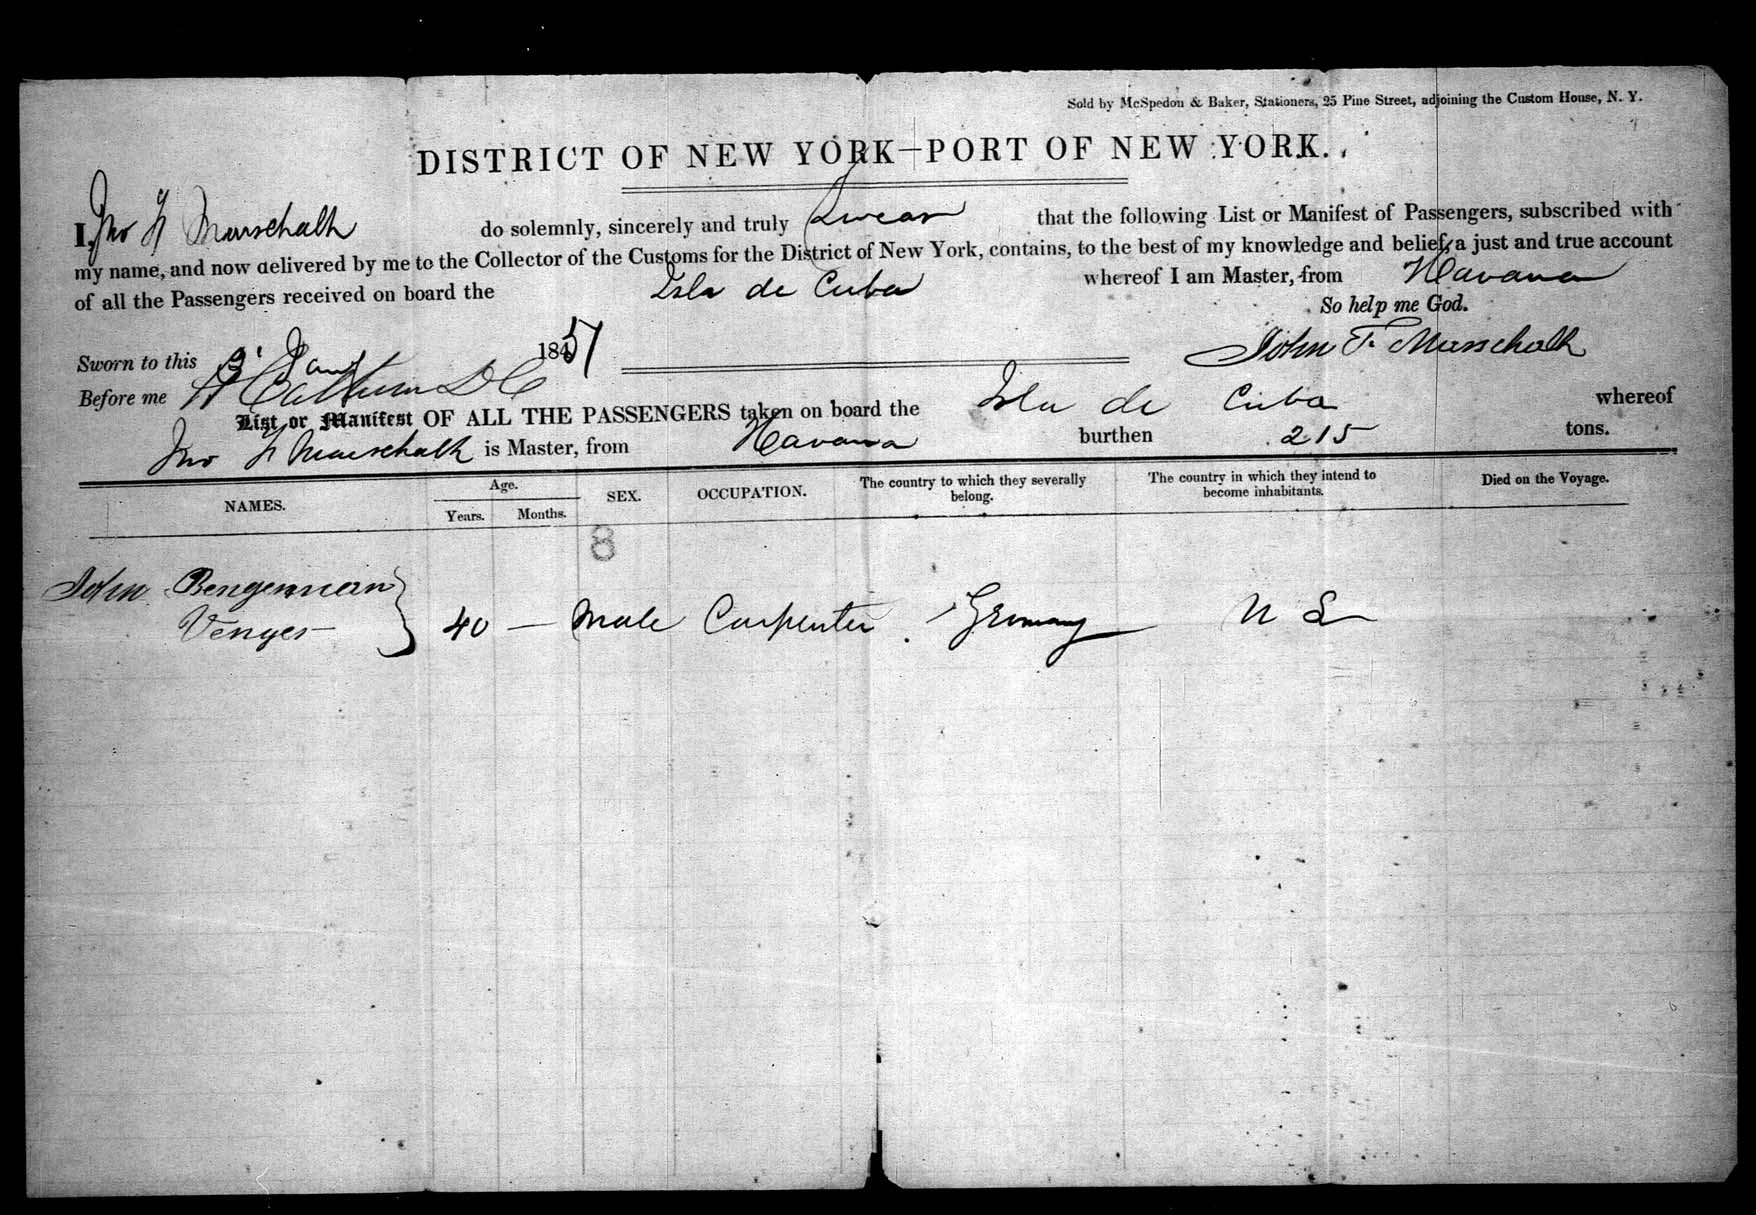 Sold by McSpedon & Baker, Stationers, 25 Pine Street, adjoining the Custom House, N. Y.
DISTRICT OF NEW YORK—PORT OF NEW YORK.
I, Jno F Marschalk do solemnly, sincerely and truly Swear that the following List or Manifest of Passengers, subscribed with
my name, and now delivered by me to the Collector of the Customs for the District of New York, contains, to the best of my knowledge and belief, a just and true account
of all the Passengers received on board the Isla de Cuba whereof I am Master, from Havana
So help me God.
Sworn to this 3 Jany 1851
John F. Marschalk
Before me
List or Manifest OF ALL THE PASSENGERS taken on board the Isla de Cuba whereof
Jno F Marschalk is Master, from Havana burthen 215 tons.
NAMES. Age. Years. Months. SEX. OCCUPATION. The country to which they severally belong. The country in which they intend to become inhabitants. Died on the Voyage.
8
John Bengemean
Venges 40 — Male Carpenter Germany U S